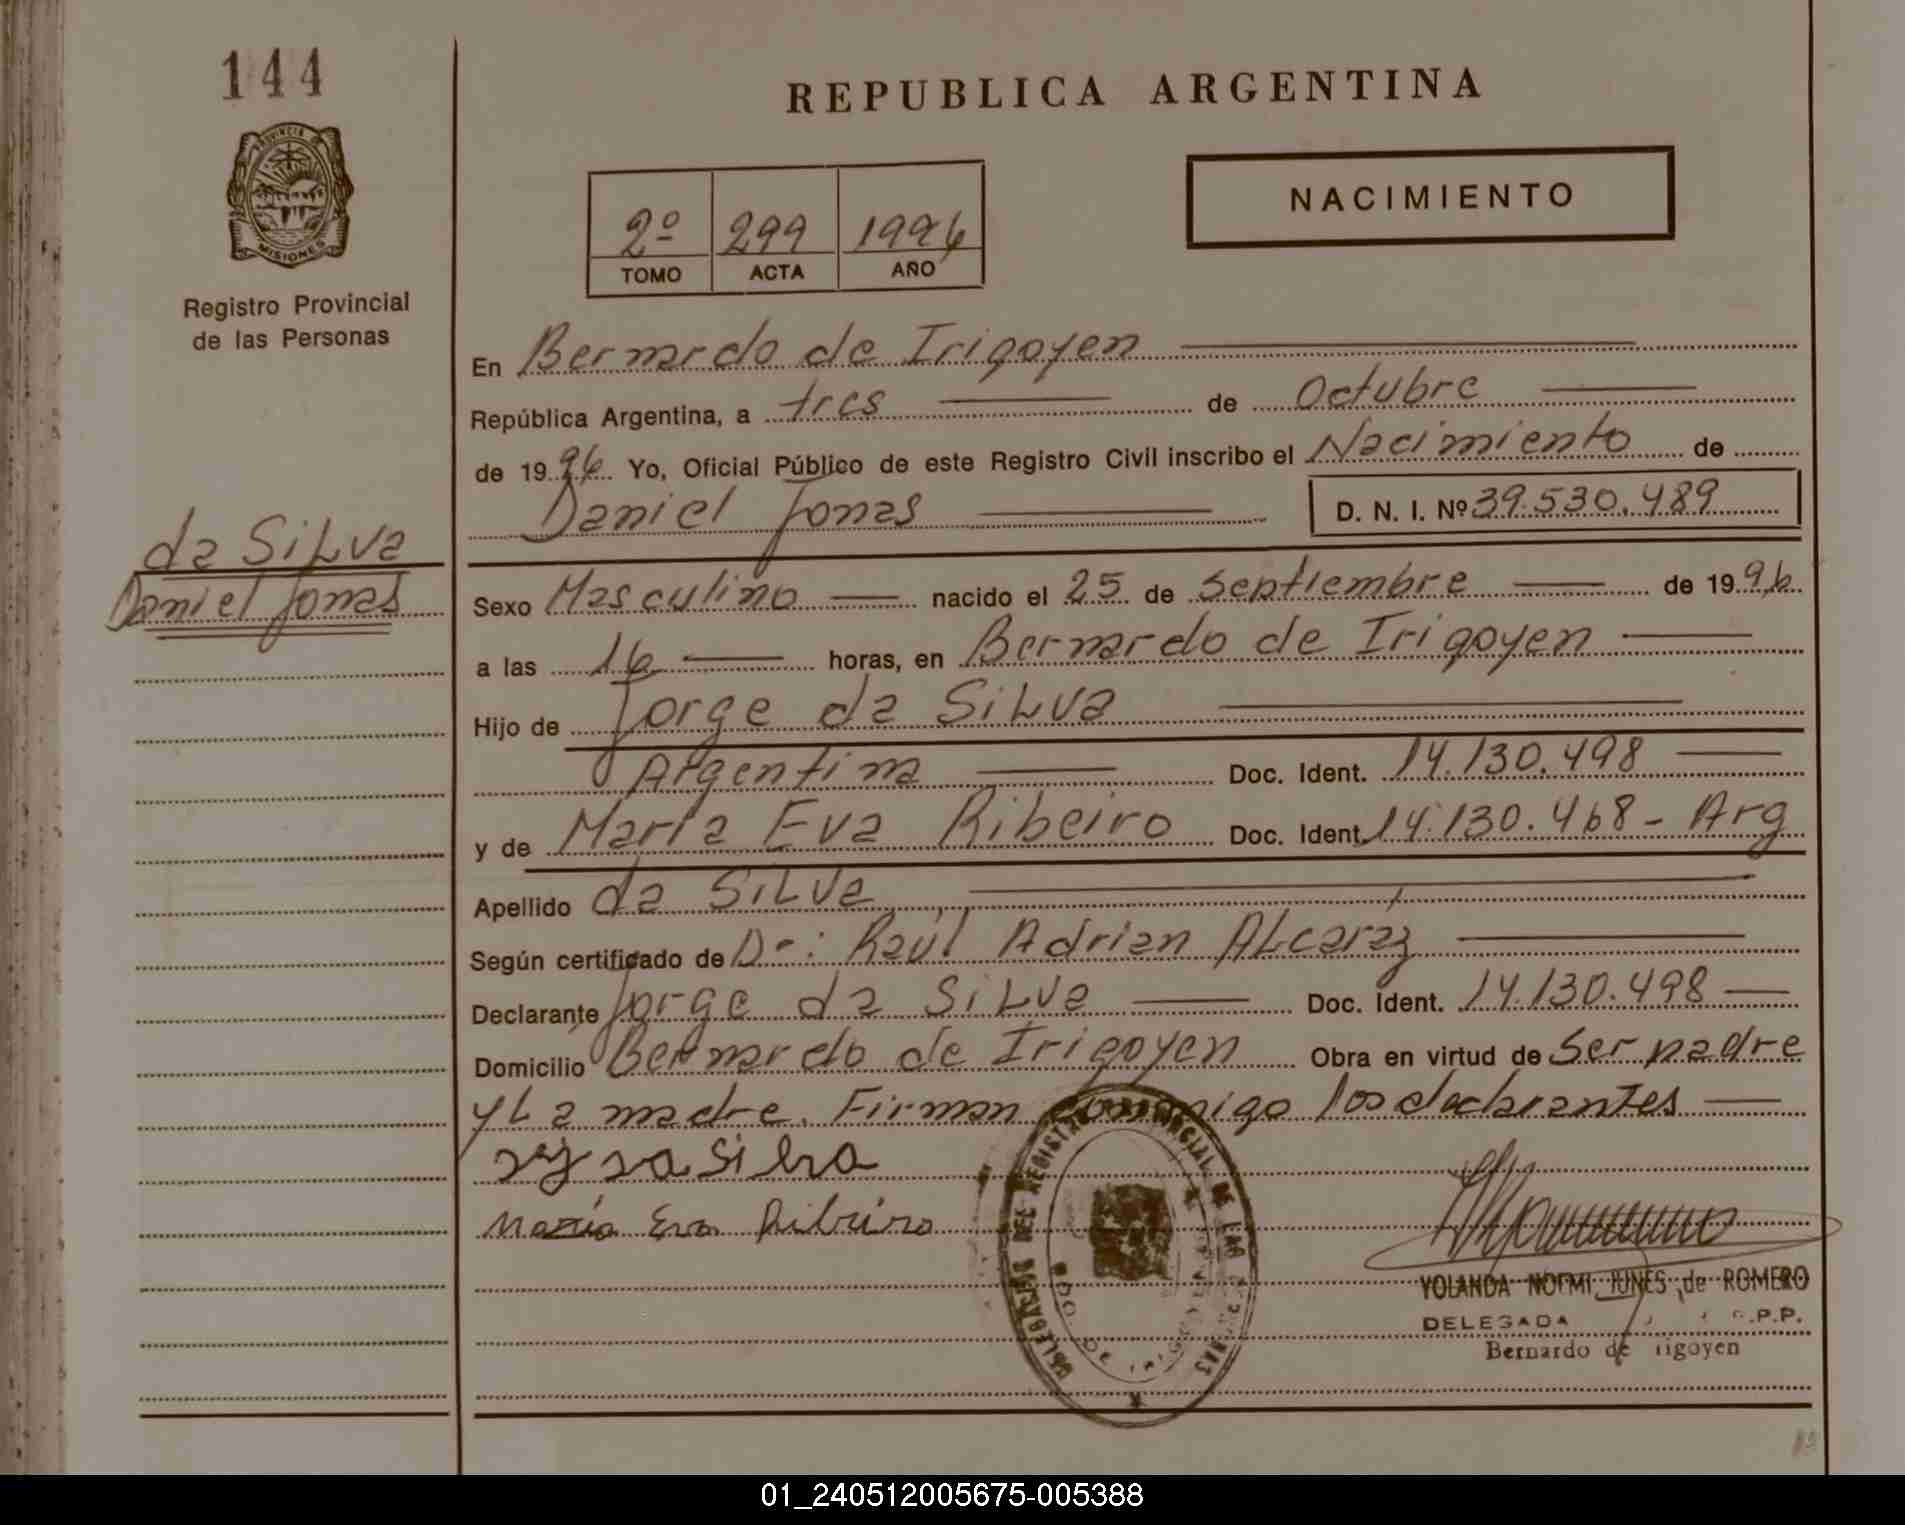 144
REPUBLICA ARGENTINA
PROVINCIA DE MISIONES
NACIMIENTO
2º 299 1996
TOMO ACTA AÑO
Registro Provincial
de las Personas
En Bernardo de Irigoyen
República Argentina, a tres de Octubre
de 1996 Yo, Oficial Público de este Registro Civil inscribo el Nacimiento de
Daniel Jonas D. N. I. Nº 39.530.489
da SiLva
Daniel Jonas
Sexo Masculino nacido el 25 de Septiembre de 1996
a las 16 horas, en Bernardo de Irigoyen
Hijo de Jorge da SiLva
Argentina Doc. Ident. 14.130.498
y de María Eva Ribeiro Doc. Ident. 14.130.468 - Arg
Apellido da SiLva
Según certificado de Dr: Raúl Adrian ALcaráz
Declarante Jorge da SiLva Doc. Ident. 14.130.498
Domicilio Bernardo de Irigoyen Obra en virtud de Ser padre
y La madre. Firman conmigo los declarantes
da Silva
María Eva Ribeiro
DELEGACION DEL REGISTRO PROVINCIAL DE LAS PERSONAS
BDO. DE IRIGOYEN
YOLANDA NOEMI JUNES de ROMERO
DELEGADA R.P.P.
Bernardo de Irigoyen
01_240512005675-005388